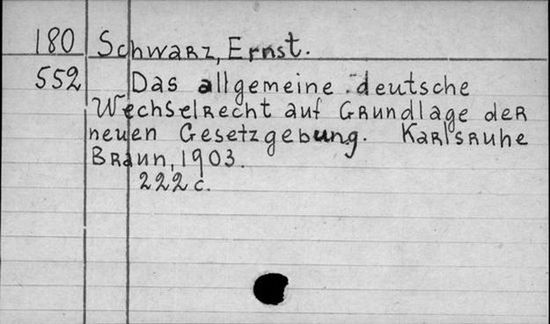 180 Schwarz, Ernst.
552 Das allgemeine deutsche
Wechselrecht auf Grundlage der
neuen Gesetzgebung. Karlsruhe
Braun, 1903.
222 c.